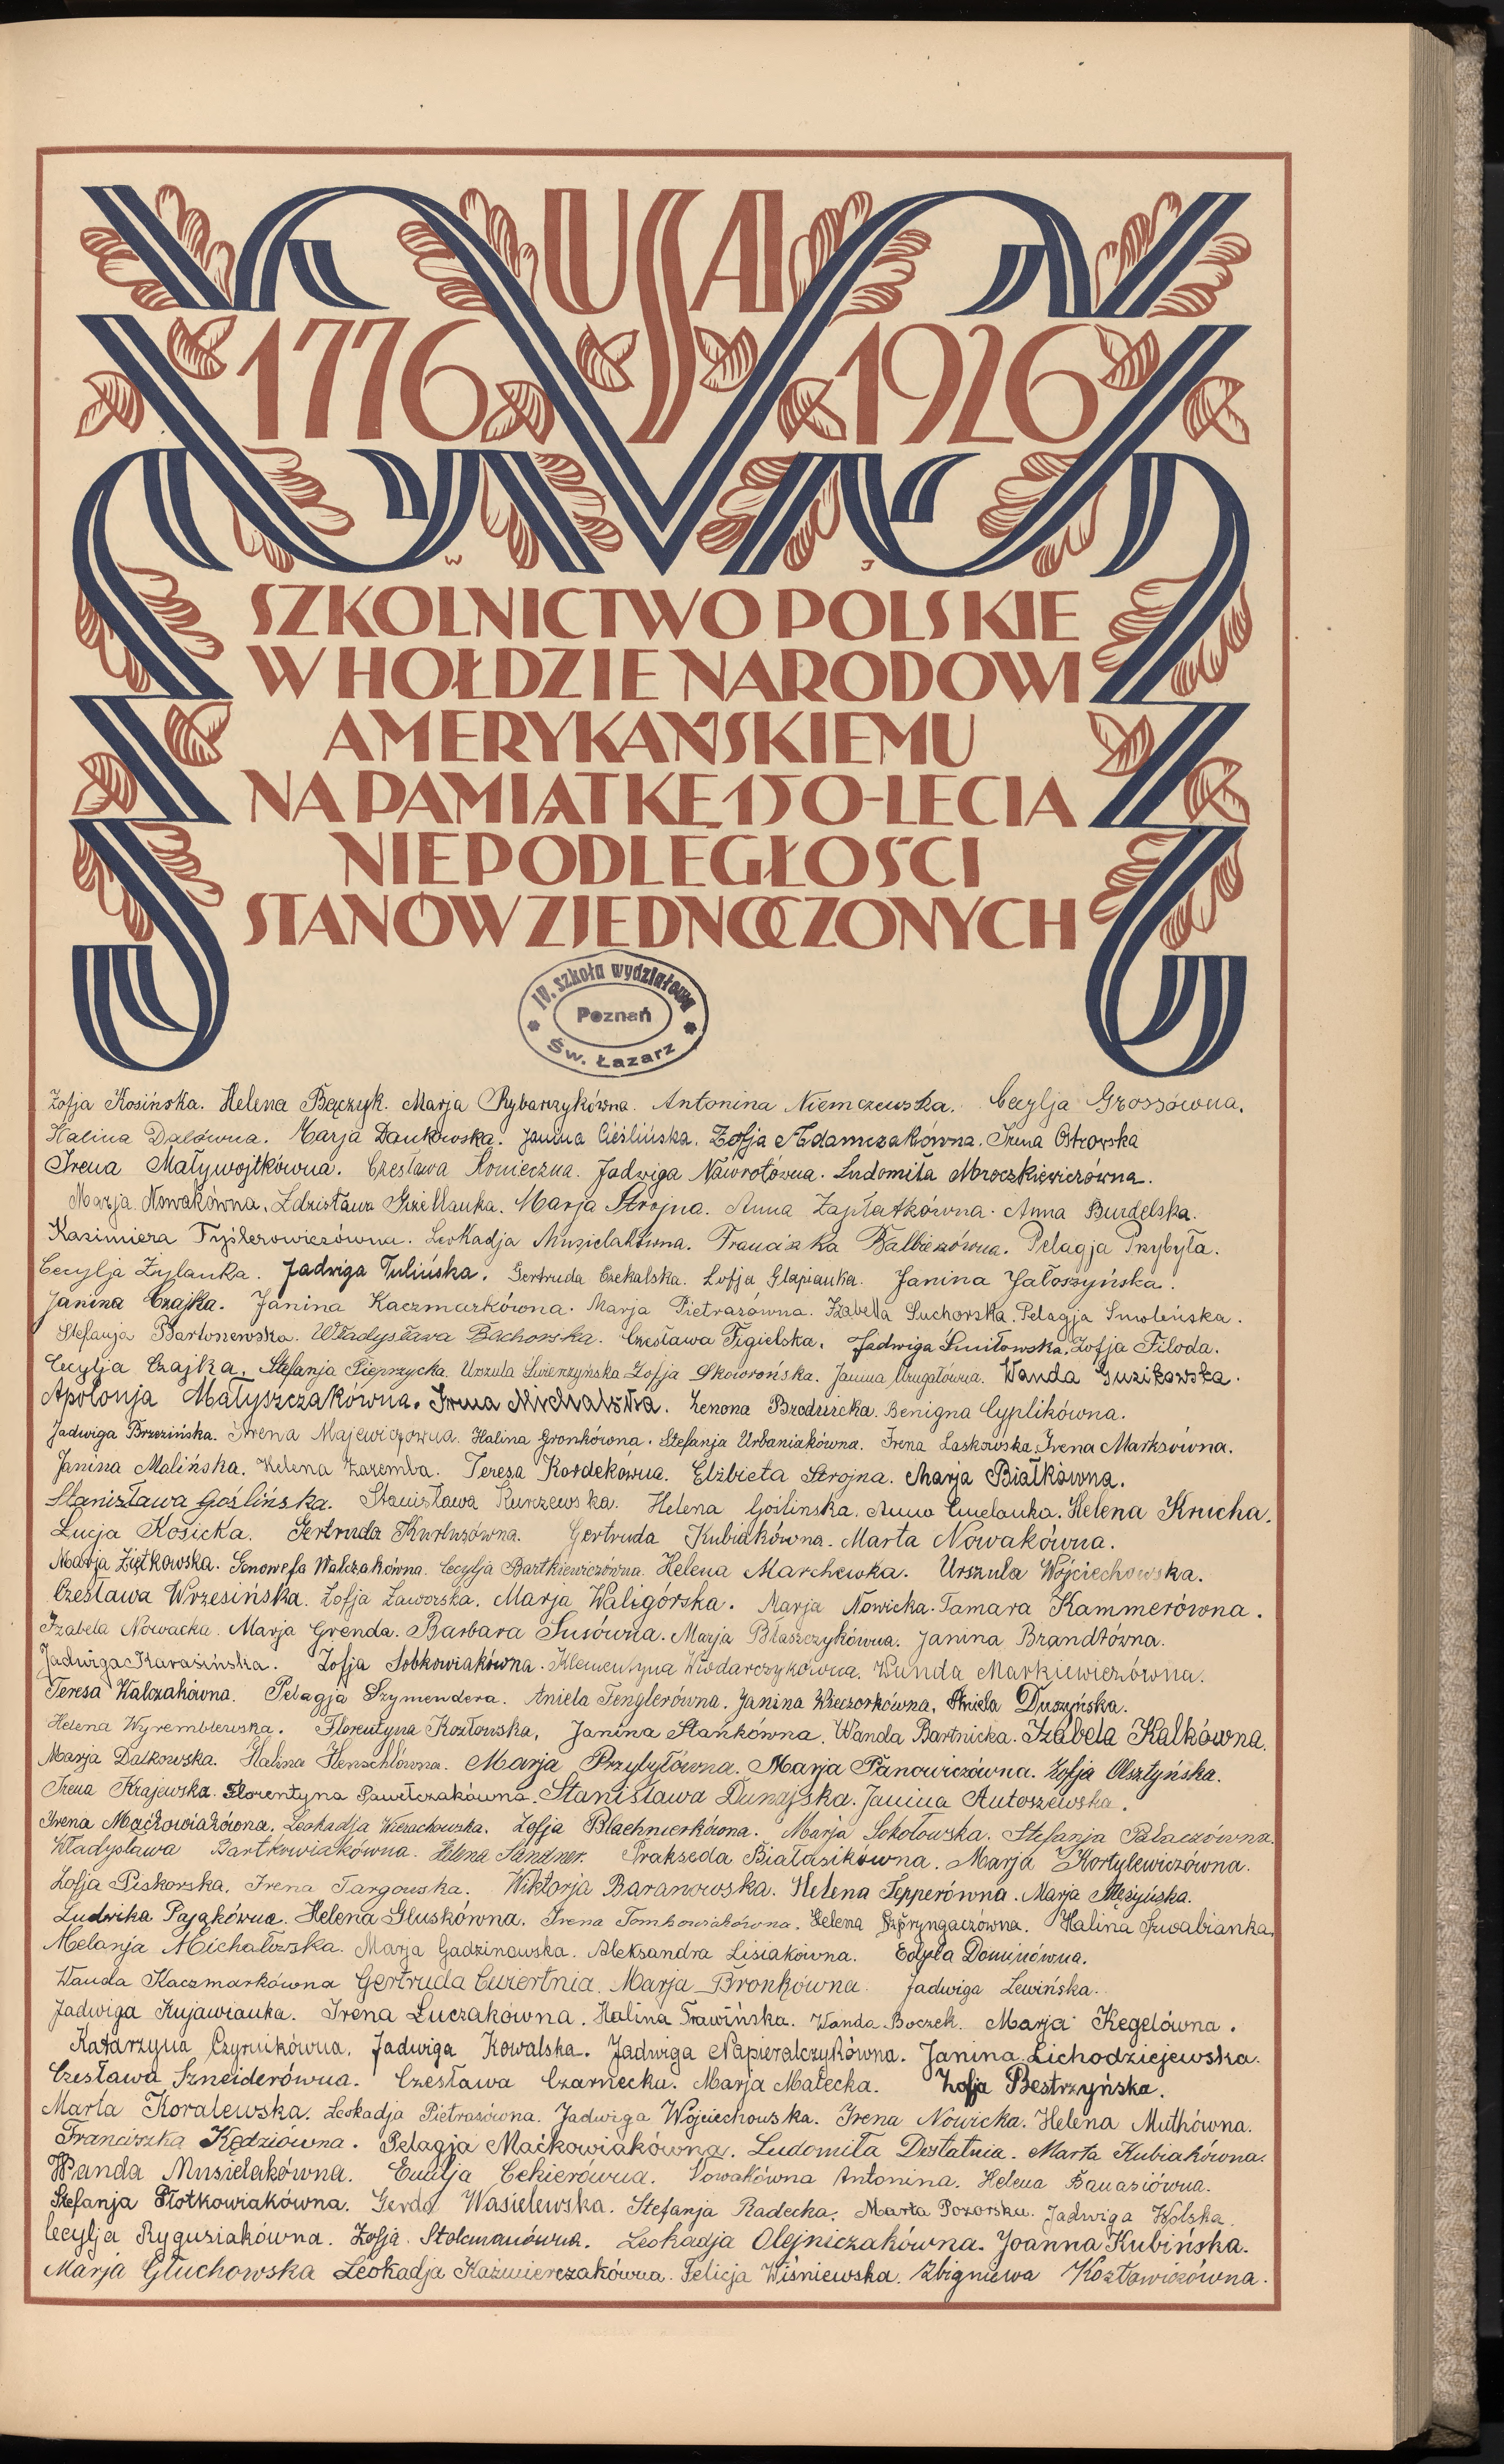 USA
1776 1926
W J
SZKOLNICTWO POLSKIE
W HOŁDZIE NARODOWI
AMERYKAŃSKIEMU
NA PAMIĄTKĘ 150-LECIA
NIEPODLEGŁOŚCI
STANÓW ZJEDNOCZONYCH
IV. szkoła wydziałowa
Poznań
Św. Łazarz
Zofja Kosińska. Helena Bączyk. Marja Rybarzykówna. Antonina Niemczewska. Cecylja Grossówna.
Halina Dalówna. Marja Dankowska. Janina Cieślińska. Zofja Adamczakówna. Irena Ostrowska
Irena Maływojtkówna. Czesława Konieczna. Jadwiga Nawrotówna. Ludomiła Mroczkiewiczówna.
Marja Nowakówna. Zdzisława Marja Strojna. Anna Zapłatkówna. Anna Burdelska.
Kazimiera Fyślerowiczówna. Leokadja Musielakówna. Franciszka Balbiezówna. Pelagja Przybyła.
Cecylja Żylanka. Jadwiga Tulińska. Gertruda Czekalska. Zofja Glapianka. Janina Jałoszyńska.
Janina Czajka. Janina Kaczmarkówna. Marja Pietrasówna. Izabella Suchorska. Pelagja Smoleńska.
Stefanja Bartoszewska. Władysława Bachorska. Czesława Figielska. Jadwiga Śmiłowska. Zofja Filoda.
Cecylja Czajka. Stefanja Pieprzycka. Urszula Świerzyńska Zofja Skoworońska. Janina Mrugałówna. Wanda Guzikowska.
Apolonja Małyszczakówna. Irena Michalska. Zenona Brodzka. Benigna Cyplikówna.
Jadwiga Brzezińska. Irena Majewiczówna. Halina Gronkówna. Stefanja Urbaniakówna. Irena Laskowska. Irena Marksówna.
Janina Malińska. Helena Zaremba. Teresa Kordekówna. Elżbieta Strojna. Marja Białkówna.
Stanisława Goślińska. Stanisława Kurzewska. Helena Goślinska. Anna Helena Krucha.
Lucja Kosicka. Gertruda Kurluzówna. Gertruda Kubiakówna. Marta Nowakówna.
Marja Ziętkowska. Genowefa Walczakówna. Cecylja Bartkiewiczówna. Helena Marchewka. Urszula Wojciechowska.
Czesława Wrzesińska. Zofja Zaworska. Marja Waligórska. Marja Nowicka. Tamara Kammerówna.
Izabela Nowacka. Marja Grenda. Barbara Susówna. Marja Błaszczykówna. Janina Brandtówna.
Jadwiga Karasińska. Zofja Sobkowiakówna. Klementyna Włodarczykówna. Wanda Markiewiczówna.
Teresa Walczakówna. Pelagja Szymendera. Aniela Fenglerówna. Janina Wieczorkówna. Aniela Duszyńska.
Helena Wyremblewska. Florentyna Kozłowska. Janina Stańkówna. Wanda Bartnicka. Izabela Kalkówna.
Marja Dalkowska. Halina Henschlówna. Marja Przybyłówna. Marja Panowiczówna. Zofja Olsztyńska.
Irena Krajewska. Florentyna Pawełczakówna. Stanisława Dunajska. Janina Antoszewska.
Irena Maćkowiakówna. Leokadja Wierachowska. Zofja Blachnierkówna. Marja Sokołowska. Stefanja Pałaczówna.
Władysława Bartkowiakówna. Helena Sandner. Prakseda Białasikówna. Marja Kortylewiczówna.
Zofja Piskorska. Irena Targowska. Wiktorja Baranowska. Helena Tepperówna. Marja Mężyńska.
Ludwika Pająkówna. Helena Głuskówna. Irena Tomkowiakówna. Helena Szpryngaczówna. Halina Szwabianka.
Melanja Michałowska. Marja Gadzinowska. Aleksandra Lisiakówna. Edyta Dominówna.
Wanda Kaczmarkówna Gertruda Ćwiertnia. Marja Bronkówna. Jadwiga Lewińska.
Jadwiga Kujawianka. Irena Łuczakówna. Halina Trawińska. Wanda Boczek. Marja Kegelówna.
Katarzyna Czyrnikówna. Jadwiga Kowalska. Jadwiga Napieralczykówna. Janina Lichodziejewska.
Czesława Szneiderówna. Czesława Czarnecka. Marja Małecka. Zofja Bestrzyńska.
Marta Koralewska. Leokadja Pietrasówna. Jadwiga Wojciechowska. Irena Nowicka. Helena Muthówna.
Franciszka Kędziówna. Pelagja Maćkowiakówna. Ludomiła Dostatnia. Marta Kubiakówna.
Wanda Musielakówna. Emilja Cekierówna. Nowakówna Antonina. Helena Banasiówna.
Stefanja Płotkowiakówna. Gerda Wasielewska. Stefanja Radecka. Marta Pozorska. Jadwiga Wolska.
Cecylja Rygusiakówna. Zofja Stelmanówna. Leokadja Olejniczakówna. Joanna Kubińska.
Marja Głuchowska Leokadja Kaźmierczakówna. Felicja Wiśniewska. Zbigniewa Kozłowiczówna.